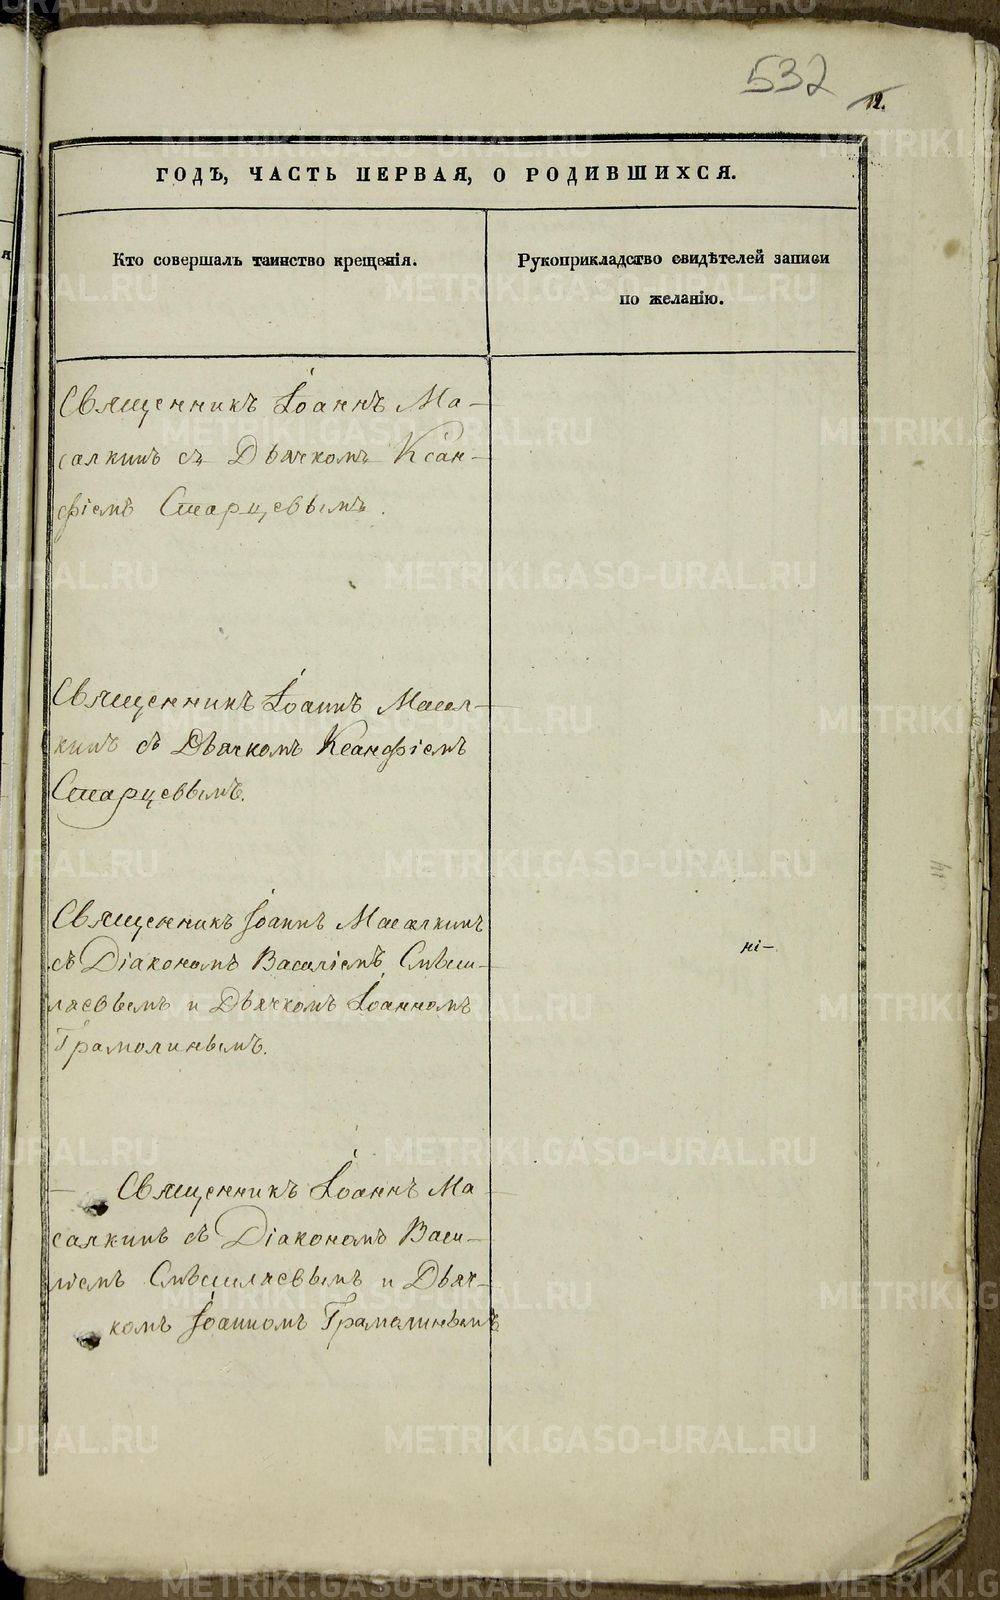 532
12.
ГОДЪ, ЧАСТЬ ПЕРВАЯ, О РОДИВШИХСЯ.
Кто совершалъ таинство крещенія.
Рукоприкладство свидѣтелей записи
по желанію.
Священникъ Іоаннъ Ма-
салкинъ съ Дьячкомъ Ксан-
фіемъ Старцевымъ.
Священникъ Іоаннъ Масал-
кинъ съ Дьячкомъ Ксанфіемъ
Старцевымъ.
Священникъ Іоаннъ Масалкинъ
съ Діакономъ Василіемъ
и Дьячкомъ Іоанномъ
Грамолинымъ.
Священникъ Іоаннъ Ма-
салкинъ съ Діакономъ Васи-
ліемъ и Дьяч-
комъ Іоанномъ Грамолинымъ
ні-
METRIKI.GASO-URAL.RU